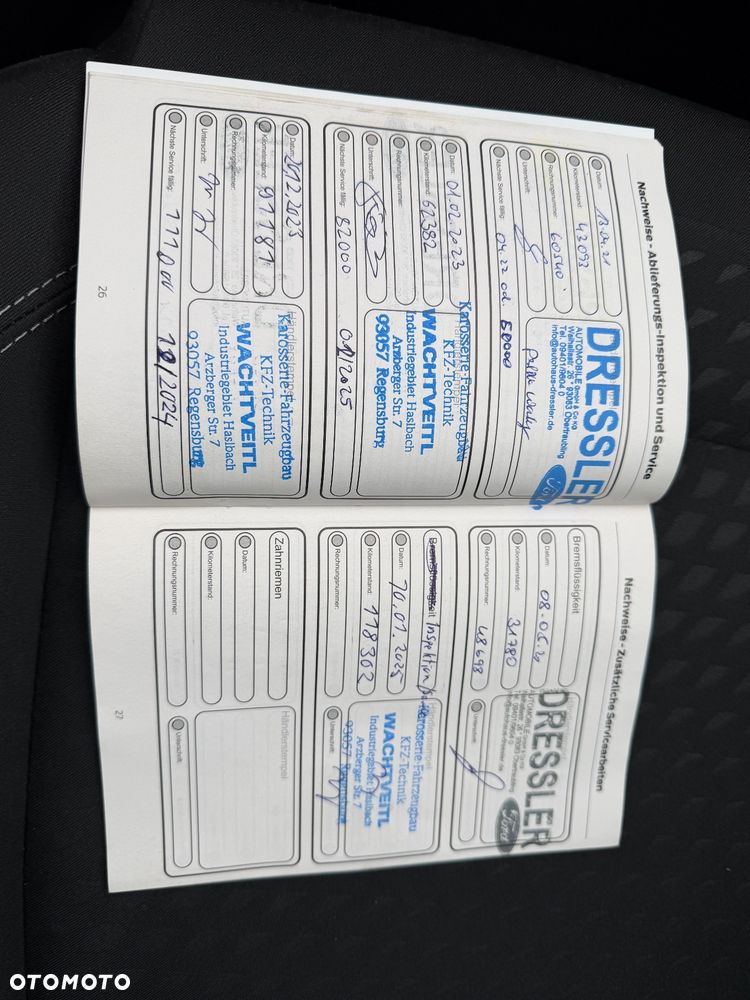 Nachweise - Ablieferungs-Inspektion und Service
Datum: 13.04.21
Kilometerstand: 43093
Rechnungsnummer: 60540
Unterschrift:
Nächste Service fällig: 04.22 od. 58000
DRESSLER
AUTOMOBILE GmbH & Co KG
Walhallastr. 26 * 93083 Obertraubling
Tel. 09401/9604 0
info@autohaus-dressler.de
Ford
Datum: 01.02.2023
Kilometerstand: 62382
Rechnungsnummer:
Unterschrift:
Nächste Service fällig: 82000 01/2025
Karosserie-Fahrzeugbau
KFZ-Technik
WACHTVEITL
Industriegebiet Haslbach
Arzberger Str. 7
93057 Regensburg
Datum: 20.12.2023
Kilometerstand: 91181
Rechnungsnummer:
Unterschrift:
Nächste Service fällig: 111000 12/2024
Karosserie-Fahrzeugbau
KFZ-Technik
WACHTVEITL
Industriegebiet Haslbach
Arzberger Str. 7
93057 Regensburg
26
Nachweise - Zusätzliche Servicearbeiten
Bremsflüssigkeit
Datum: 08.05.20
Kilometerstand: 31780
Rechnungsnummer: 48698
Unterschrift:
DRESSLER
AUTOMOBILE GmbH & Co KG
Walhallastr. 26 * 93083 Obertraubling
Tel. 09401/9604 0
info@autohaus-dressler.de
Ford
Bremsflüssigkeit Inspektion
Datum: 10.01.2025
Kilometerstand: 118302
Rechnungsnummer:
Unterschrift:
Karosserie-Fahrzeugbau
KFZ-Technik
WACHTVEITL
Industriegebiet Haslbach
Arzberger Str. 7
93057 Regensburg
Zahnriemen
Datum:
Kilometerstand:
Rechnungsnummer:
Händlerstempel
Unterschrift:
27
OTOMOTO